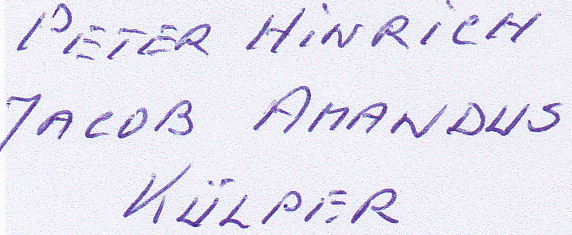 PETER HINRICH
JACOB AMANDUS
KÜLPER